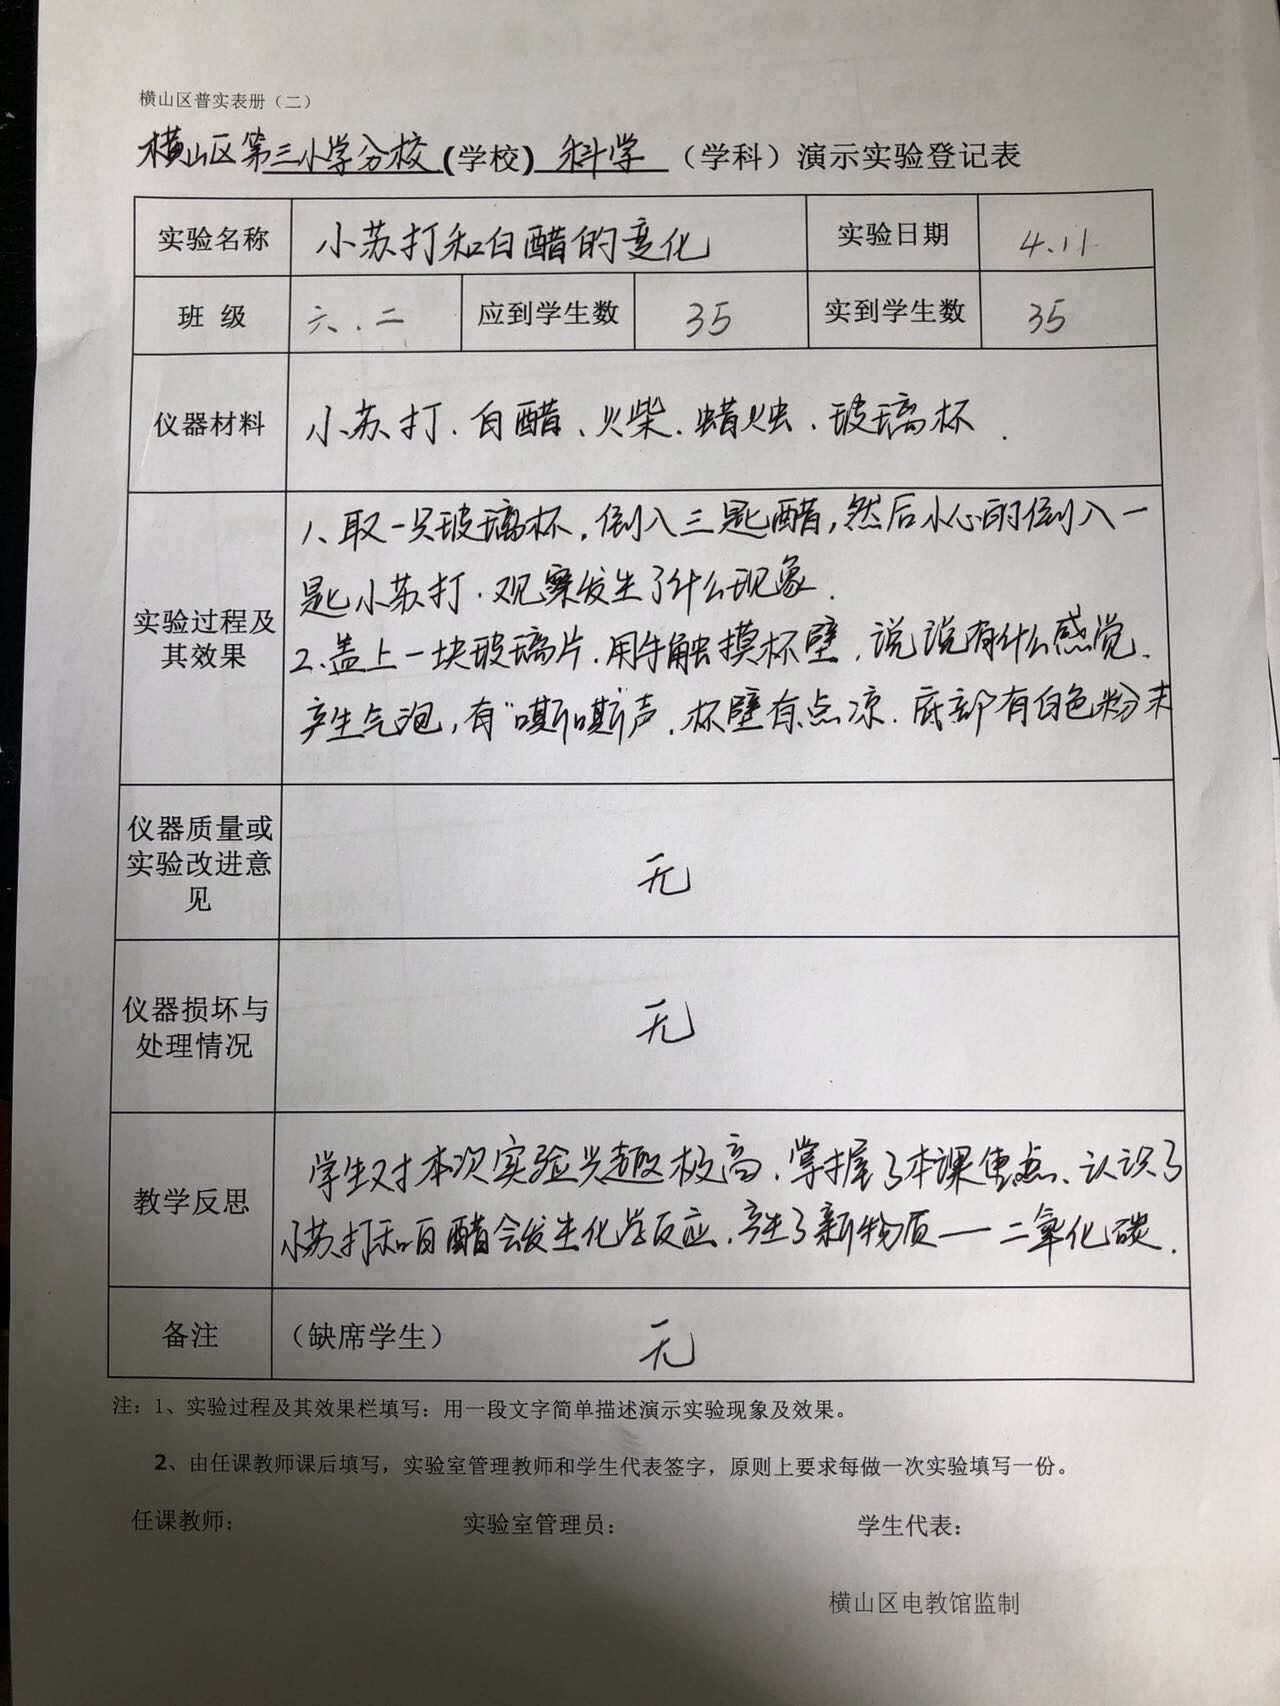 横山区普实表册（二）
横山区第三小学分校(学校) 科学 （学科）演示实验登记表
实验名称 小苏打和白醋的变化 实验日期 4.11
班 级 六.二 应到学生数 35 实到学生数 35
仪器材料 小苏打、白醋、火柴、蜡烛、玻璃杯.
实验过程及
其效果
1、取一只玻璃杯,倒入三匙醋,然后小心的倒入一
匙小苏打.观察发生了什么现象.
2、盖上一块玻璃片.用手触摸杯壁,说说有什么感觉.
产生气泡,有"嘶嘶"声,杯壁有点凉.底部有白色粉末
仪器质量或
实验改进意
见
无
仪器损坏与
处理情况
无
教学反思
学生对本次实验兴趣极高,掌握了本课重点、认识了
小苏打和白醋会发生化学反应,产生了新物质——二氧化碳.
备注 （缺席学生） 无
注：1、实验过程及其效果栏填写：用一段文字简单描述演示实验现象及效果。
2、由任课教师课后填写，实验室管理教师和学生代表签字，原则上要求每做一次实验填写一份。
任课教师： 实验室管理员： 学生代表：
横山区电教馆监制